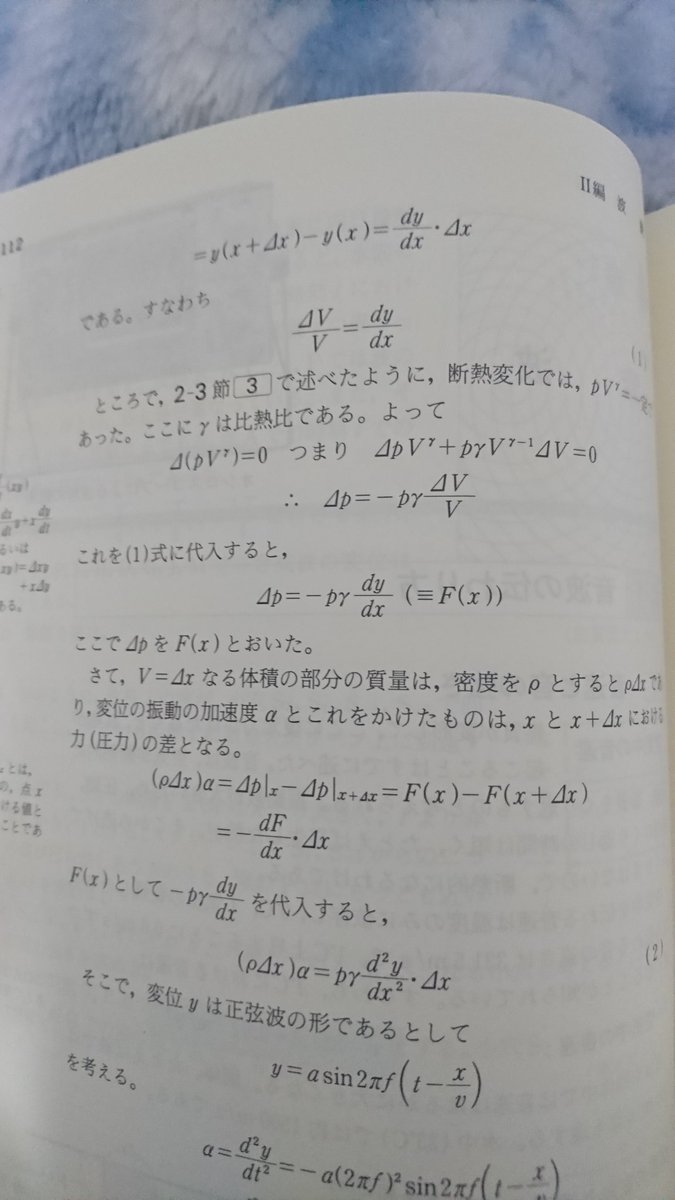 II編 波
112
=y(x+Δx)-y(x)=dy/dx・Δx
である。すなわち
ΔV/V=dy/dx
(1)
ところで, 2-3節 3 で述べたように, 断熱変化では, pV^γ=
あった。ここにγは比熱比である。よって
Δ(pV^γ)=0 つまり ΔpV^γ+pγV^(γ-1)ΔV=0
∴ Δp=-pγ ΔV/V
これを(1)式に代入すると,
Δp=-pγ dy/dx (≡F(x))
ここでΔpをF(x)とおいた。
さて, V=Δxなる体積の部分の質量は, 密度をρとするとρΔxであ
り, 変位の振動の加速度αとこれをかけたものは, xとx+Δxにおける
力(圧力)の差となる。
(ρΔx)α=Δp|x-Δp|x+Δx=F(x)-F(x+Δx)
=-dF/dx・Δx
F(x)として-pγ dy/dx を代入すると,
(ρΔx)α=pγ d²y/dx²・Δx
(2)
そこで, 変位yは正弦波の形であるとして
y=a sin2πf(t-x/v)
を考える。
α=d²y/dt²=-a(2πf)²sin2πf(t-x/
(xy)
dx/dt y+x dy/dt
るいは
xy)=Δxy
+xΔy
ある。
xとは,
の, 点x
ける値と
ことであ